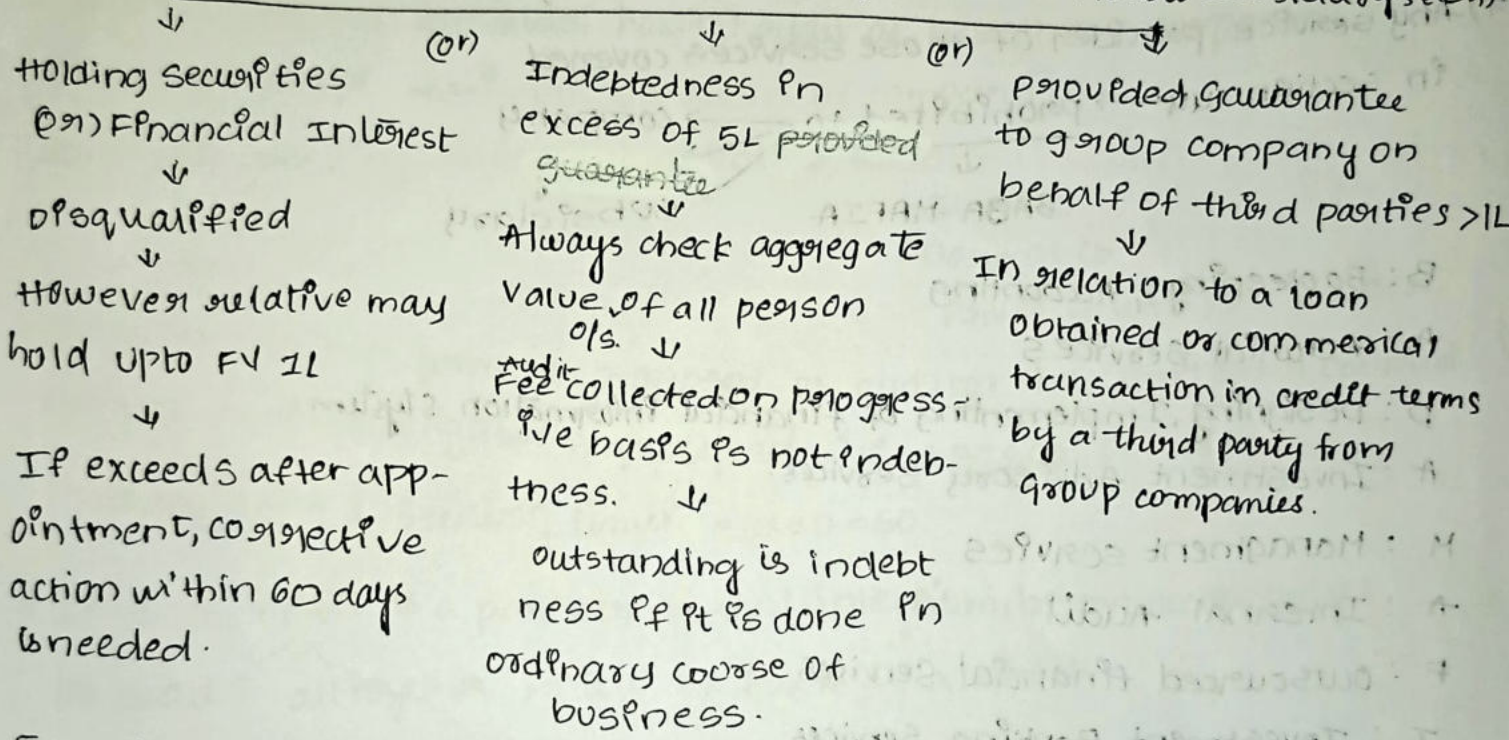 (or)
(or)
Holding securities
(or) Financial Interest
Disqualified
However relative may
hold upto FV 1L
If exceeds after app-
ointment, corrective
action within 60 days
is needed.
Indebtedness in
excess of 5L provided
guarantee
Always check aggregate
value of all person
o/s.
Audit
Fee collected on progress-
ive basis is not indeb-
tness.
outstanding is indebt
ness if it is done in
ordinary course of
business.
provided, gauarantee
to group company on
behalf of third parties >1L
In relation to a loan
obtained or commerical
transaction in credit terms
by a third party from
group companies.